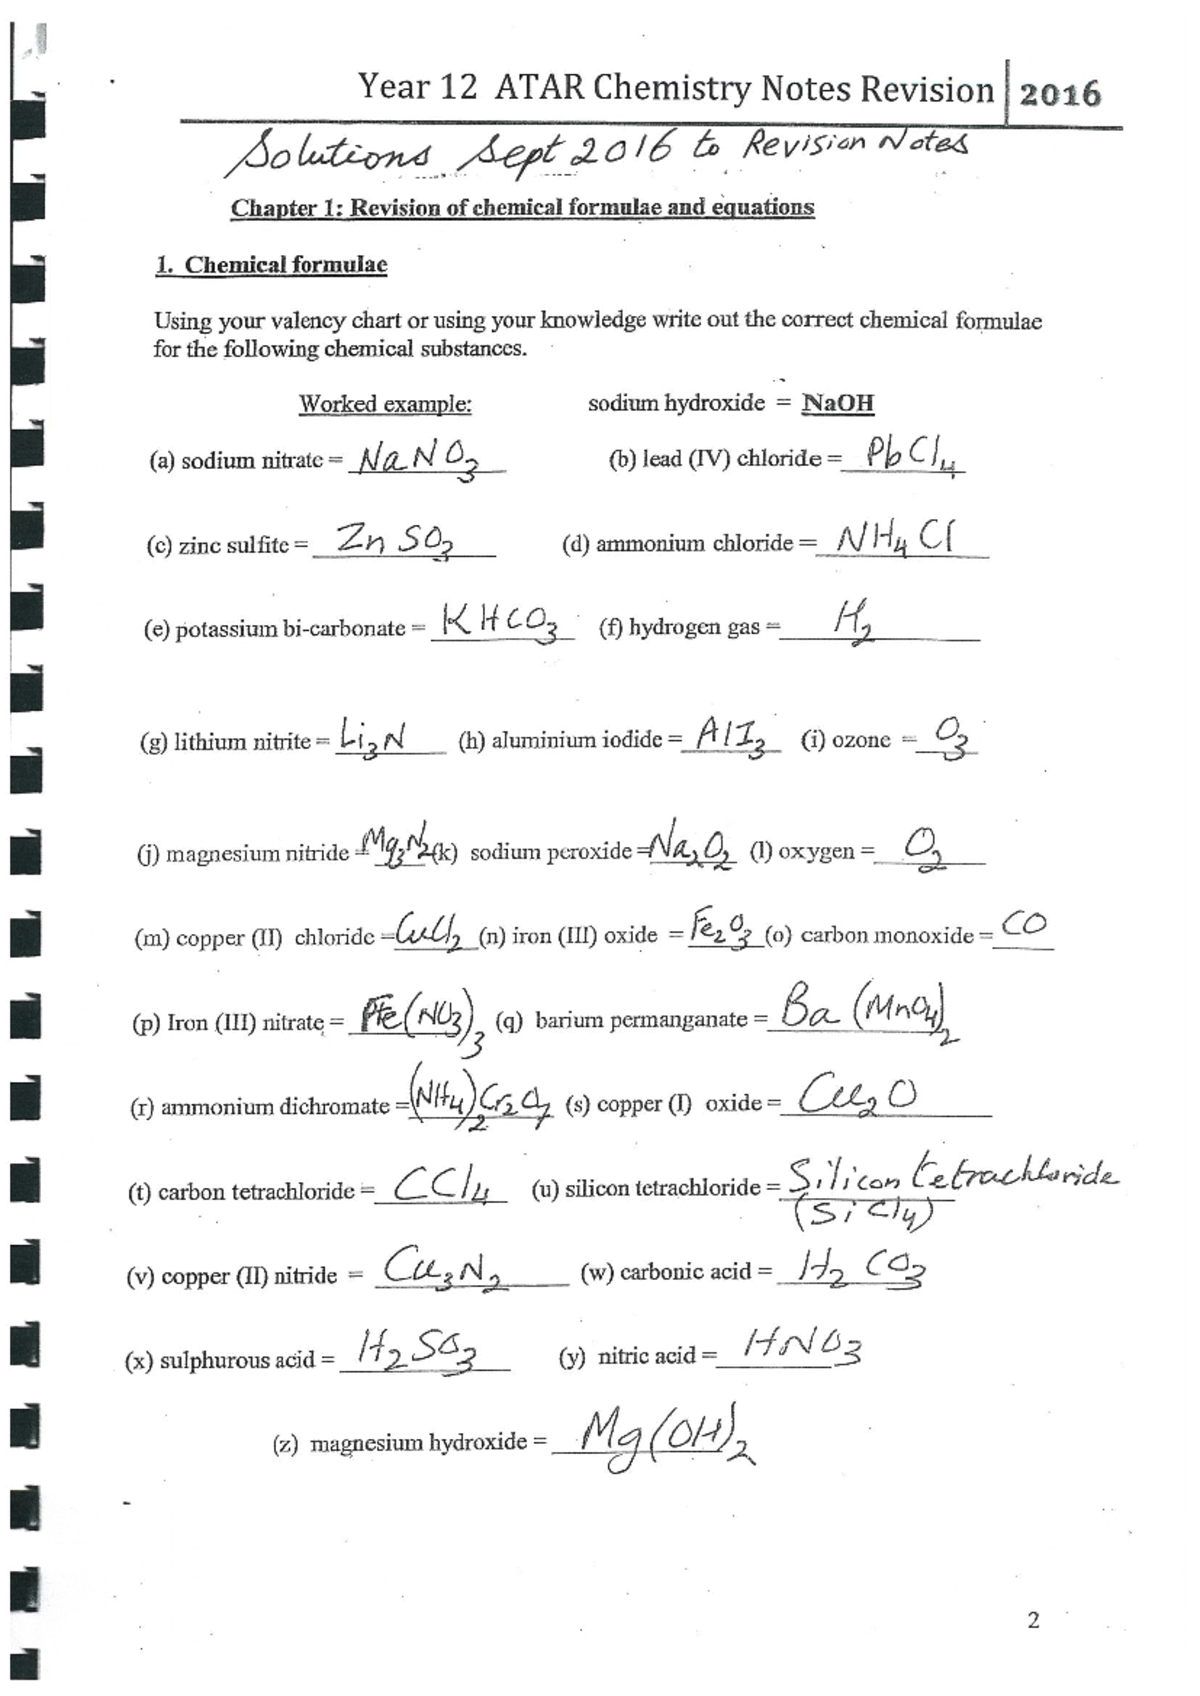 Year 12 ATAR Chemistry Notes Revision 2016
Solutions Sept 2016 to Revision Notes
Chapter 1: Revision of chemical formulae and equations
1. Chemical formulae
Using your valency chart or using your knowledge write out the correct chemical formulae
for the following chemical substances.
Worked example: sodium hydroxide = NaOH
(a) sodium nitrate = NaNO₃ (b) lead (IV) chloride = PbCl₄
(c) zinc sulfite = ZnSO₃ (d) ammonium chloride = NH₄Cl
(e) potassium bi-carbonate = KHCO₃ (f) hydrogen gas = H₂
(g) lithium nitrite = Li₃N (h) aluminium iodide = AlI₃ (i) ozone = O₃
(j) magnesium nitride = Mg₃N₂ (k) sodium peroxide = Na₂O₂ (l) oxygen = O₂
(m) copper (II) chloride = CuCl₂ (n) iron (III) oxide = Fe₂O₃ (o) carbon monoxide = CO
(p) Iron (III) nitrate = Fe(NO₃)₃ (q) barium permanganate = Ba(MnO₄)₂
(r) ammonium dichromate = (NH₄)₂Cr₂O₇ (s) copper (I) oxide = Cu₂O
(t) carbon tetrachloride = CCl₄ (u) silicon tetrachloride = Silicon tetrachloride
(SiCl₄)
(v) copper (II) nitride = Cu₃N₂ (w) carbonic acid = H₂CO₃
(x) sulphurous acid = H₂SO₃ (y) nitric acid = HNO₃
(z) magnesium hydroxide = Mg(OH)₂
2